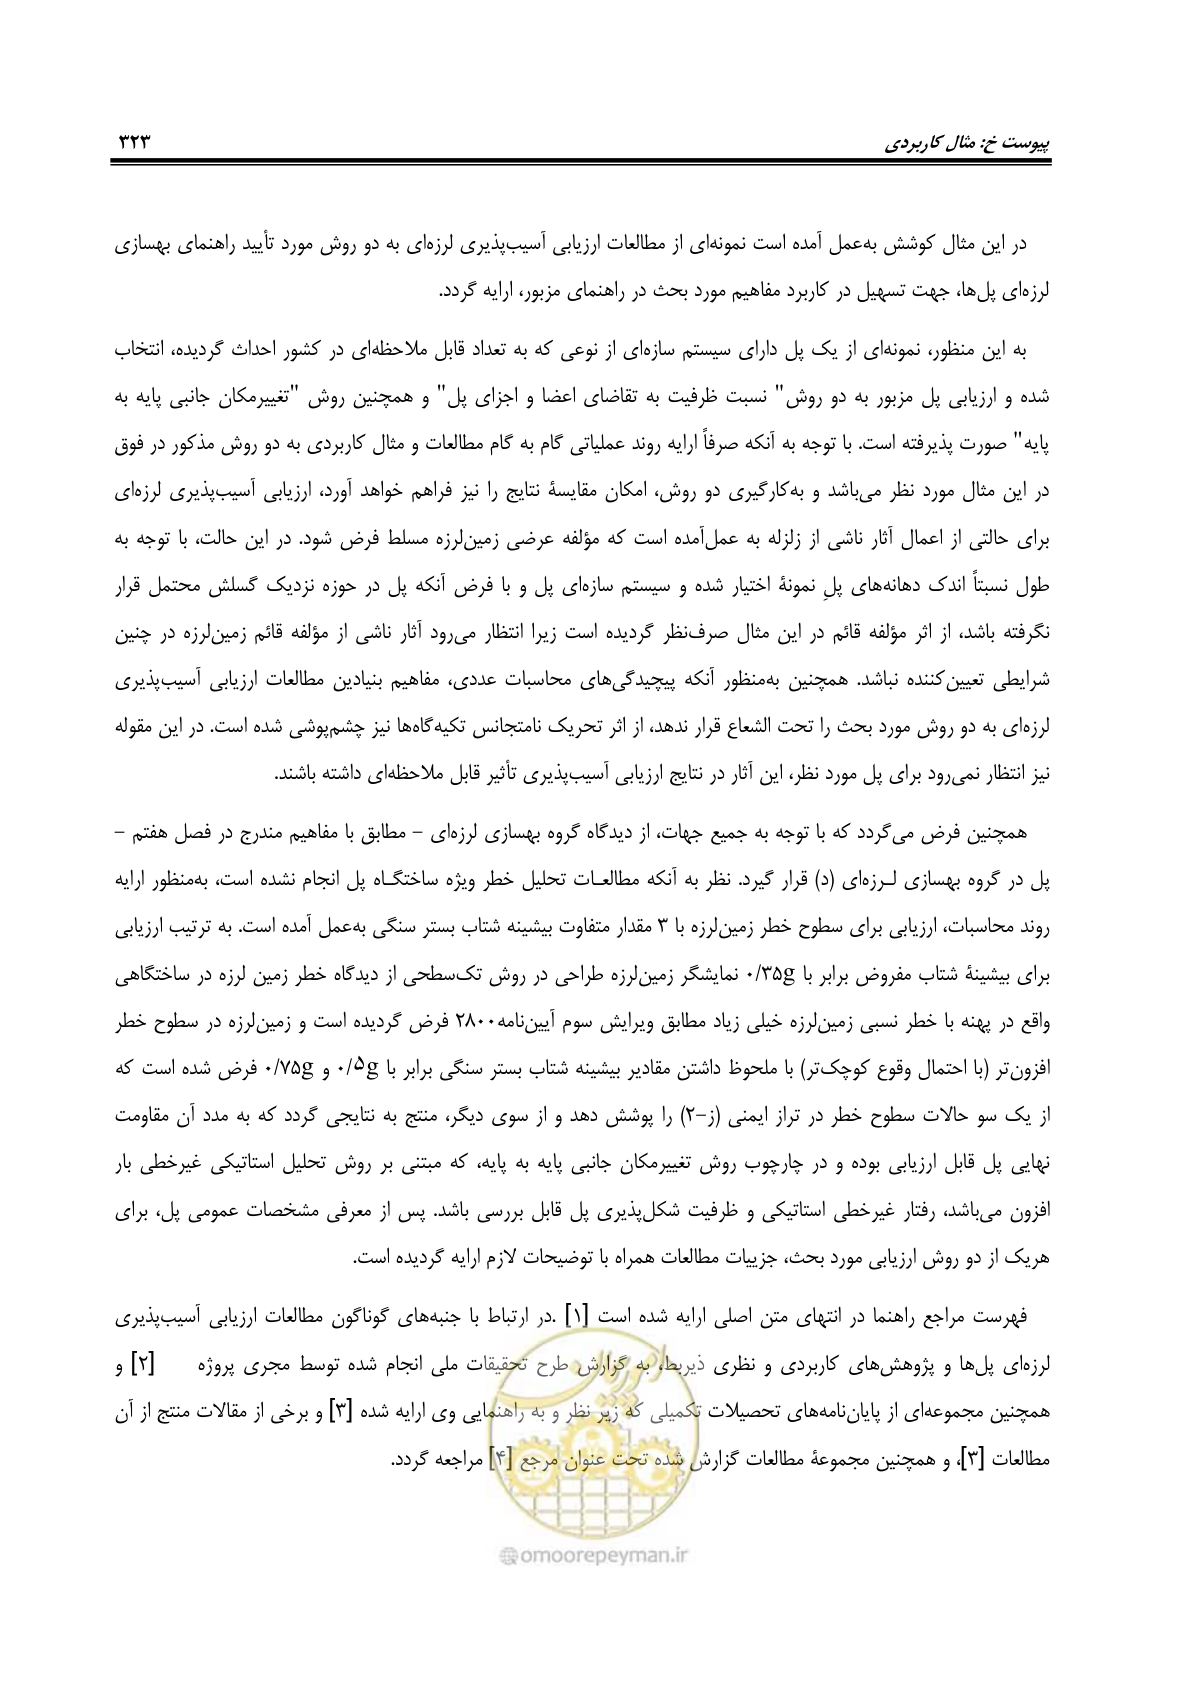 پیوست خ: مثال کاربردی ۳۲۳
در این مثال کوشش به‌عمل آمده است نمونه‌ای از مطالعات ارزیابی آسیب‌پذیری لرزه‌ای به دو روش مورد تأیید راهنمای بهسازی
لرزه‌ای پل‌ها، جهت تسهیل در کاربرد مفاهیم مورد بحث در راهنمای مزبور، ارایه گردد.
به این منظور، نمونه‌ای از یک پل دارای سیستم سازه‌ای از نوعی که به تعداد قابل ملاحظه‌ای در کشور احداث گردیده، انتخاب
شده و ارزیابی پل مزبور به دو روش" نسبت ظرفیت به تقاضای اعضا و اجزای پل" و همچنین روش "تغییرمکان جانبی پایه به
پایه" صورت پذیرفته است. با توجه به آنکه صرفاً ارایه روند عملیاتی گام به گام مطالعات و مثال کاربردی به دو روش مذکور در فوق
در این مثال مورد نظر می‌باشد و به‌کارگیری دو روش، امکان مقایسۀ نتایج را نیز فراهم خواهد آورد، ارزیابی آسیب‌پذیری لرزه‌ای
برای حالتی از اعمال آثار ناشی از زلزله به عمل‌آمده است که مؤلفه عرضی زمین‌لرزه مسلط فرض شود. در این حالت، با توجه به
طول نسبتاً اندک دهانه‌های پلِ نمونۀ اختیار شده و سیستم سازه‌ای پل و با فرض آنکه پل در حوزه نزدیک گسلش محتمل قرار
نگرفته باشد، از اثر مؤلفه قائم در این مثال صرف‌نظر گردیده است زیرا انتظار می‌رود آثار ناشی از مؤلفه قائم زمین‌لرزه در چنین
شرایطی تعیین‌کننده نباشد. همچنین به‌منظور آنکه پیچیدگی‌های محاسبات عددی، مفاهیم بنیادین مطالعات ارزیابی آسیب‌پذیری
لرزه‌ای به دو روش مورد بحث را تحت الشعاع قرار ندهد، از اثر تحریک نامتجانس تکیه‌گاه‌ها نیز چشم‌پوشی شده است. در این مقوله
نیز انتظار نمی‌رود برای پل مورد نظر، این آثار در نتایج ارزیابی آسیب‌پذیری تأثیر قابل ملاحظه‌ای داشته باشند.
همچنین فرض می‌گردد که با توجه به جمیع جهات، از دیدگاه گروه بهسازی لرزه‌ای – مطابق با مفاهیم مندرج در فصل هفتم –
پل در گروه بهسازی لـرزه‌ای (د) قرار گیرد. نظر به آنکه مطالعـات تحلیل خطر ویژه ساختگـاه پل انجام نشده است، به‌منظور ارایه
روند محاسبات، ارزیابی برای سطوح خطر زمین‌لرزه با ۳ مقدار متفاوت بیشینه شتاب بستر سنگی به‌عمل آمده است. به ترتیب ارزیابی
برای بیشینۀ شتاب مفروض برابر با ۰/۳۵g نمایشگر زمین‌لرزه طراحی در روش تک‌سطحی از دیدگاه خطر زمین لرزه در ساختگاهی
واقع در پهنه با خطر نسبی زمین‌لرزه خیلی زیاد مطابق ویرایش سوم آیین‌نامه۲۸۰۰ فرض گردیده است و زمین‌لرزه در سطوح خطر
افزون‌تر (با احتمال وقوع کوچک‌تر) با ملحوظ داشتن مقادیر بیشینه شتاب بستر سنگی برابر با ۰/۵g و ۰/۷۵g فرض شده است که
از یک سو حالات سطوح خطر در تراز ایمنی (ز–۲) را پوشش دهد و از سوی دیگر، منتج به نتایجی گردد که به مدد آن مقاومت
نهایی پل قابل ارزیابی بوده و در چارچوب روش تغییرمکان جانبی پایه به پایه، که مبتنی بر روش تحلیل استاتیکی غیرخطی بار
افزون می‌باشد، رفتار غیرخطی استاتیکی و ظرفیت شکل‌پذیری پل قابل بررسی باشد. پس از معرفی مشخصات عمومی پل، برای
هریک از دو روش ارزیابی مورد بحث، جزییات مطالعات همراه با توضیحات لازم ارایه گردیده است.
فهرست مراجع راهنما در انتهای متن اصلی ارایه شده است [۱] .در ارتباط با جنبه‌های گوناگون مطالعات ارزیابی آسیب‌پذیری
لرزه‌ای پل‌ها و پژوهش‌های کاربردی و نظری ذیربط، به گزارش طرح تحقیقات ملی انجام شده توسط مجری پروژه [۲] و
همچنین مجموعه‌ای از پایان‌نامه‌های تحصیلات تکمیلی که زیر نظر و به راهنمایی وی ارایه شده [۳] و برخی از مقالات منتج از آن
مطالعات [۳]، و همچنین مجموعۀ مطالعات گزارش شده تحت عنوان مرجع [۴] مراجعه گردد.
امور پیمان
@omoorepeyman.ir